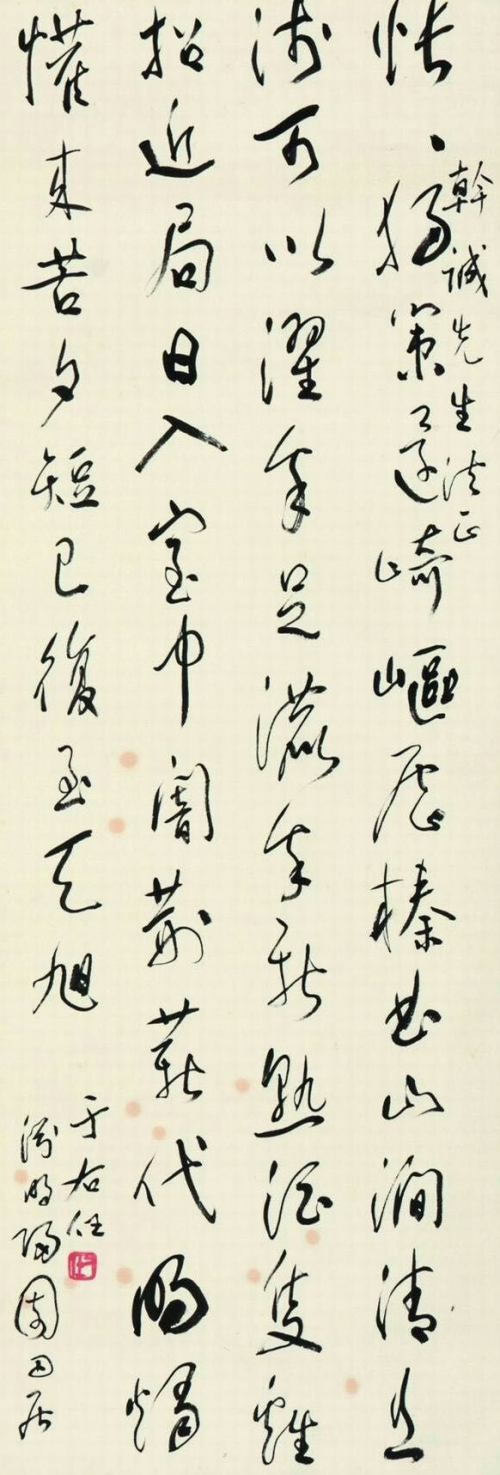 幹誠先生法正
悵、獨策還崎嶇歷榛曲山澗清且
淺可以濯吾足漉吾新熟酒隻雞
招近局日入室中闇荊薪代明燭
懽來苦夕短已復至天旭
于右任
淵明歸園田居